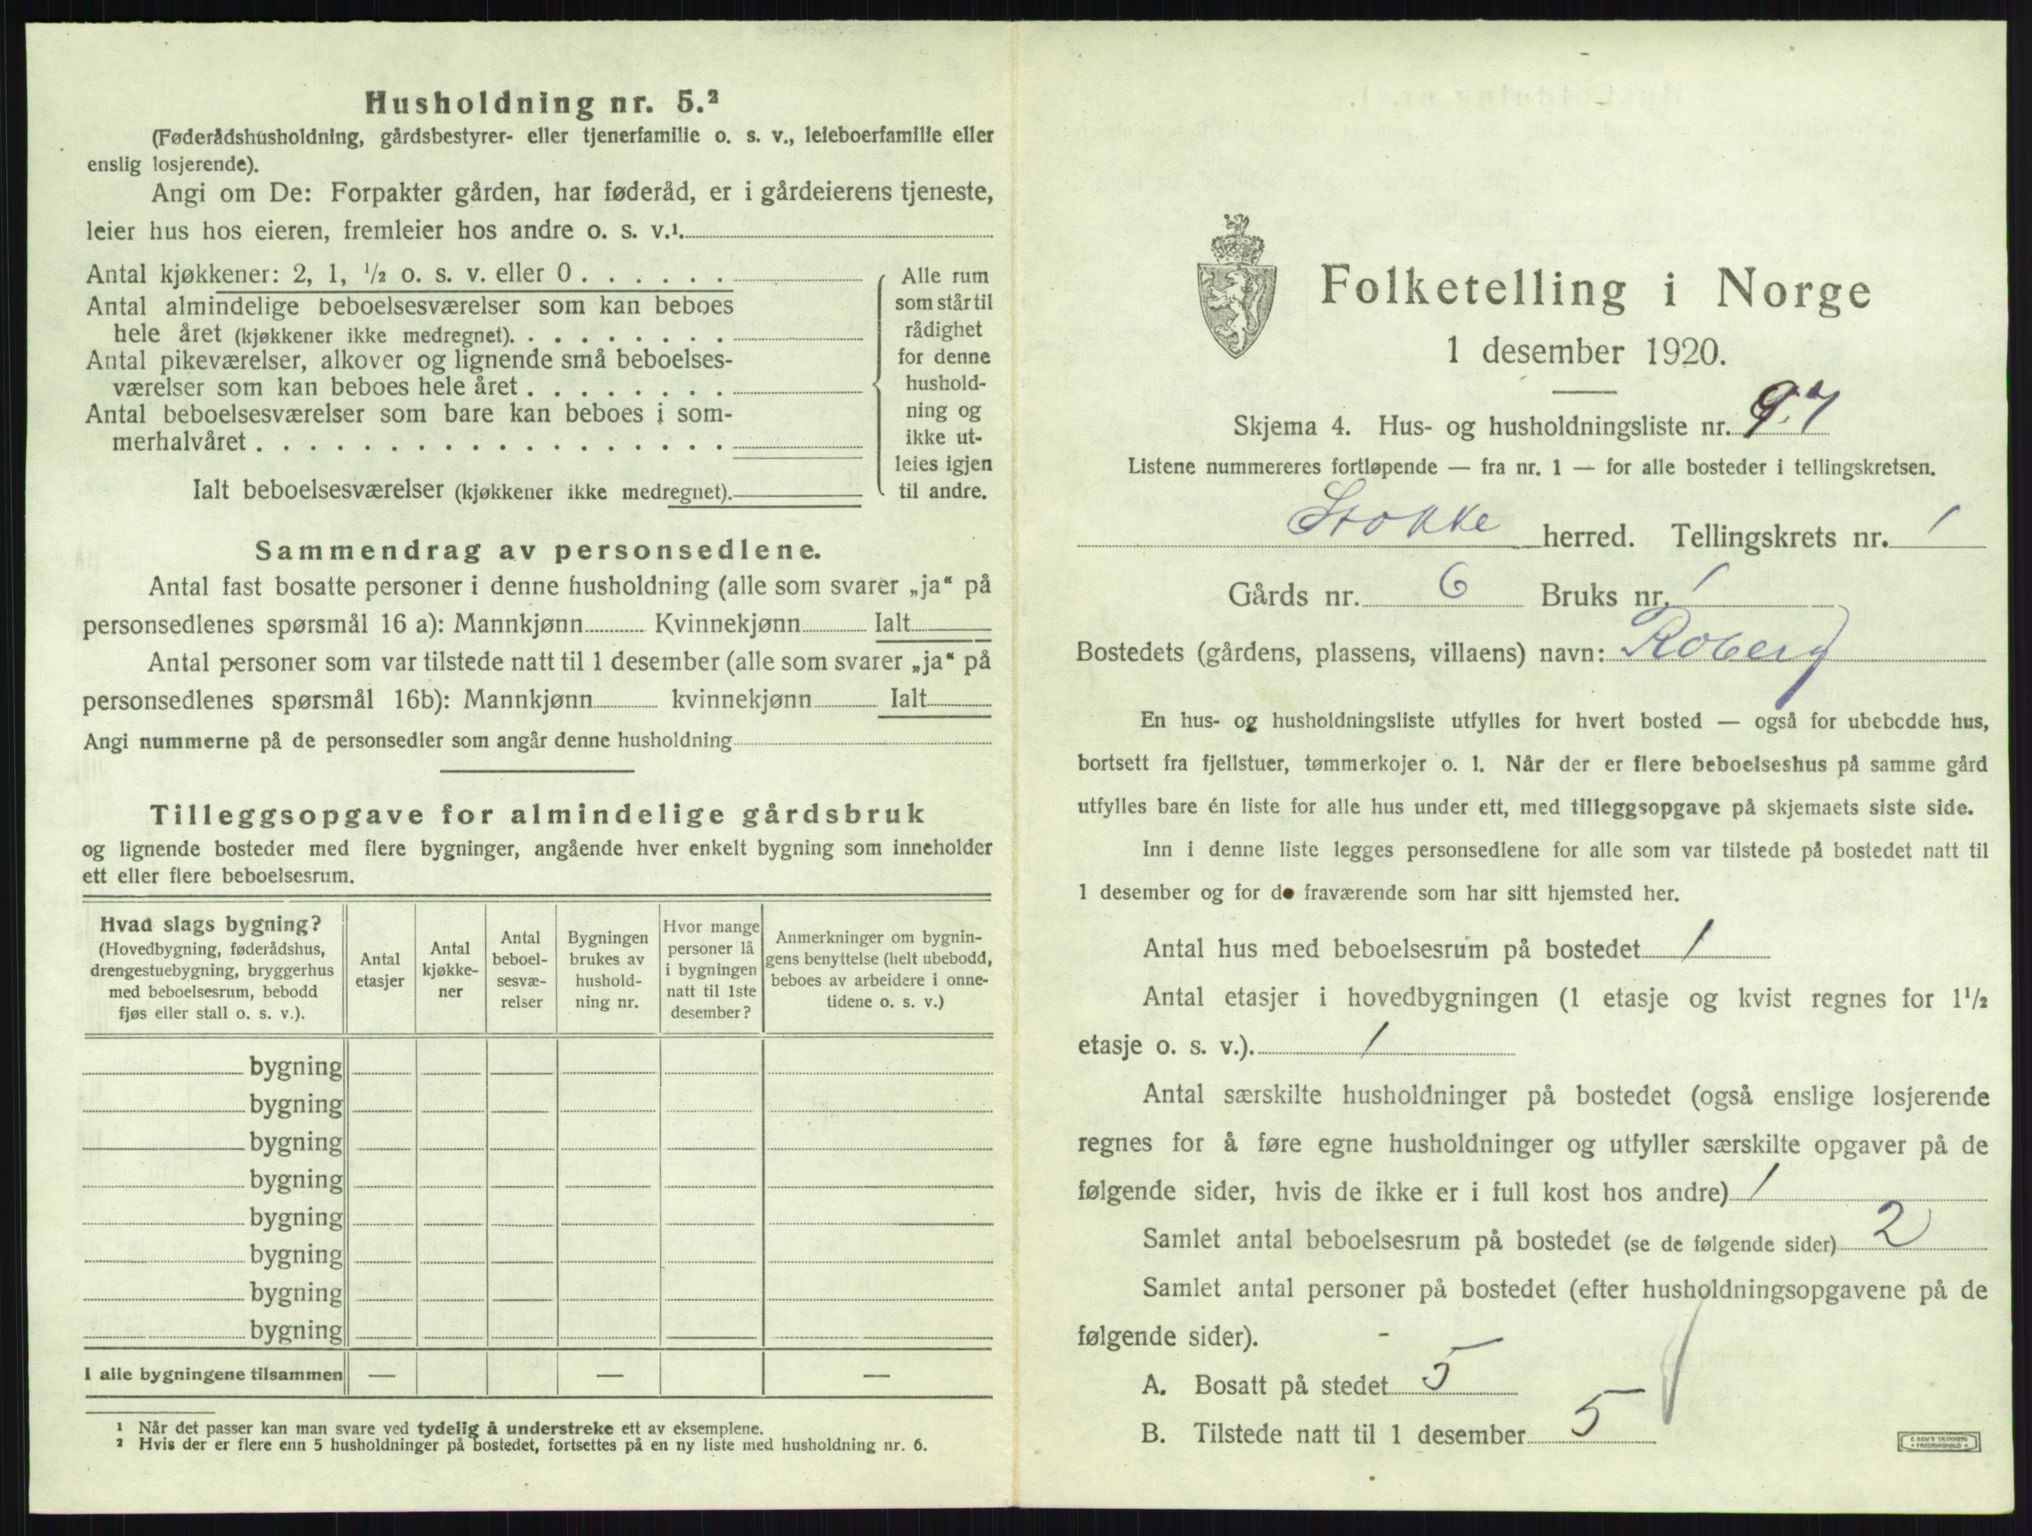 Husholdning nr. 5.²
(Føderådshusholdning, gårdsbestyrer- eller tjenerfamilie o. s. v., leieboerfamilie eller
enslig losjerende).
Angi om De: Forpakter gården, har føderåd, er i gårdeierens tjeneste,
leier hus hos eieren, fremleier hos andre o. s. v.¹
Antal kjøkkener: 2, 1, ½ o. s. v. eller 0 . . . . . .
Antal almindelige beboelsesværelser som kan beboes
hele året (kjøkkener ikke medregnet). . . . . . . . .
Antal pikeværelser, alkover og lignende små beboelses-
værelser som kan beboes hele året . . . . . . . .
Antal beboelsesværelser som bare kan beboes i som-
merhalvåret . . . . . . . . . . . . . . . . . .
Ialt beboelsesværelser (kjøkkener ikke medregnet).
Alle rum
som står til
rådighet
for denne
hushold-
ning og
ikke ut-
leies igjen
til andre.
Sammendrag av personsedlene.
Antal fast bosatte personer i denne husholdning (alle som svarer „ja“ på
personsedlenes spørsmål 16 a): Mannkjønn Kvinnekjønn Ialt
Antal personer som var tilstede natt til 1 desember (alle som svarer „ja“ på
personsedlenes spørsmål 16b): Mannkjønn kvinnekjønn Ialt
Angi nummerne på de personsedler som angår denne husholdning
Tilleggsopgave for almindelige gårdsbruk
og lignende bosteder med flere bygninger, angående hver enkelt bygning som inneholder
ett eller flere beboelsesrum.
Hvad slags bygning?
(Hovedbygning, føderådshus,
drengestuebygning, bryggerhus
med beboelsesrum, bebodd
fjøs eller stall o. s. v.).
Antal
etasjer
Antal
kjøkke-
ner
Antal
beboel-
sesvæ-
relser
Bygningen
brukes av
hushold-
ning nr.
Hvor mange
personer lå
i bygningen
natt til 1ste
desember?
Anmerkninger om bygnin-
gens benyttelse (helt ubebodd,
beboes av arbeidere i onne-
tidene o. s. v.)
bygning
bygning
bygning
bygning
bygning
bygning
bygning
bygning
I alle bygningene tilsammen — — —
¹ Når det passer kan man svare ved tydelig å understreke ett av eksemplene.
² Hvis der er flere enn 5 husholdninger på bostedet, fortsettes på en ny liste med husholdning nr. 6.
Folketelling i Norge
1 desember 1920.
Skjema 4. Hus- og husholdningsliste nr. 97
Listene nummereres fortløpende — fra nr. 1 — for alle bosteder i tellingskretsen.
Stokke herred. Tellingskrets nr. 1
Gårds nr. 6 Bruks nr. 1
Bostedets (gårdens, plassens, villaens) navn: Roberg
En hus- og husholdningsliste utfylles for hvert bosted — også for ubebodde hus,
bortsett fra fjellstuer, tømmerkojer o. l. Når der er flere beboelseshus på samme gård
utfylles bare én liste for alle hus under ett, med tilleggsopgave på skjemaets siste side.
Inn i denne liste legges personsedlene for alle som var tilstede på bostedet natt til
1 desember og for de fraværende som har sitt hjemsted her.
Antal hus med beboelsesrum på bostedet 1
Antal etasjer i hovedbygningen (1 etasje og kvist regnes for 1½
etasje o. s. v.). 1
Antal særskilte husholdninger på bostedet (også enslige losjerende
regnes for å føre egne husholdninger og utfyller særskilte opgaver på de
følgende sider, hvis de ikke er i full kost hos andre) 1
Samlet antal beboelsesrum på bostedet (se de følgende sider) 2
Samlet antal personer på bostedet (efter husholdningsopgavene på de
følgende sider).
A. Bosatt på stedet 5
B. Tilstede natt til 1 desember 5